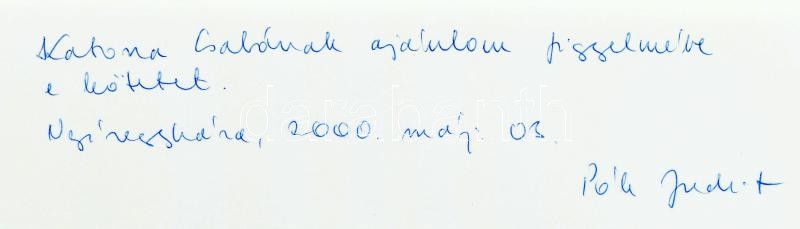 Katona Csabának ajánlom figyelmébe
e kötetet.
Nyíregyháza, 2000. máj. 03.
Pók Judit
darabanth